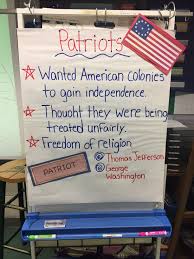 Patriots
Wanted American colonies
to gain independence.
Thought they were being
treated unfairly.
Freedom of religion
Thomas Jefferson
George
Washington
PATRIOT